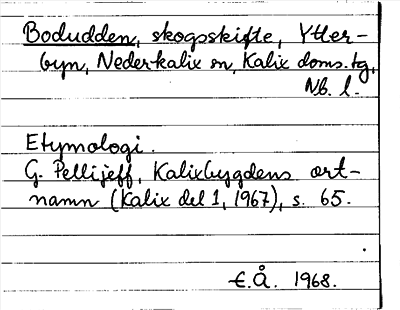 Bodudden, skogsskifte, Ytter-
byn, Nederkalix sn, Kalix doms.tg,
Nb. l.
Etymologi.
G. Pellijeff, Kalixbygdens ort-
namn (Kalix del 1, 1967), s. 65.
E.Å. 1968.